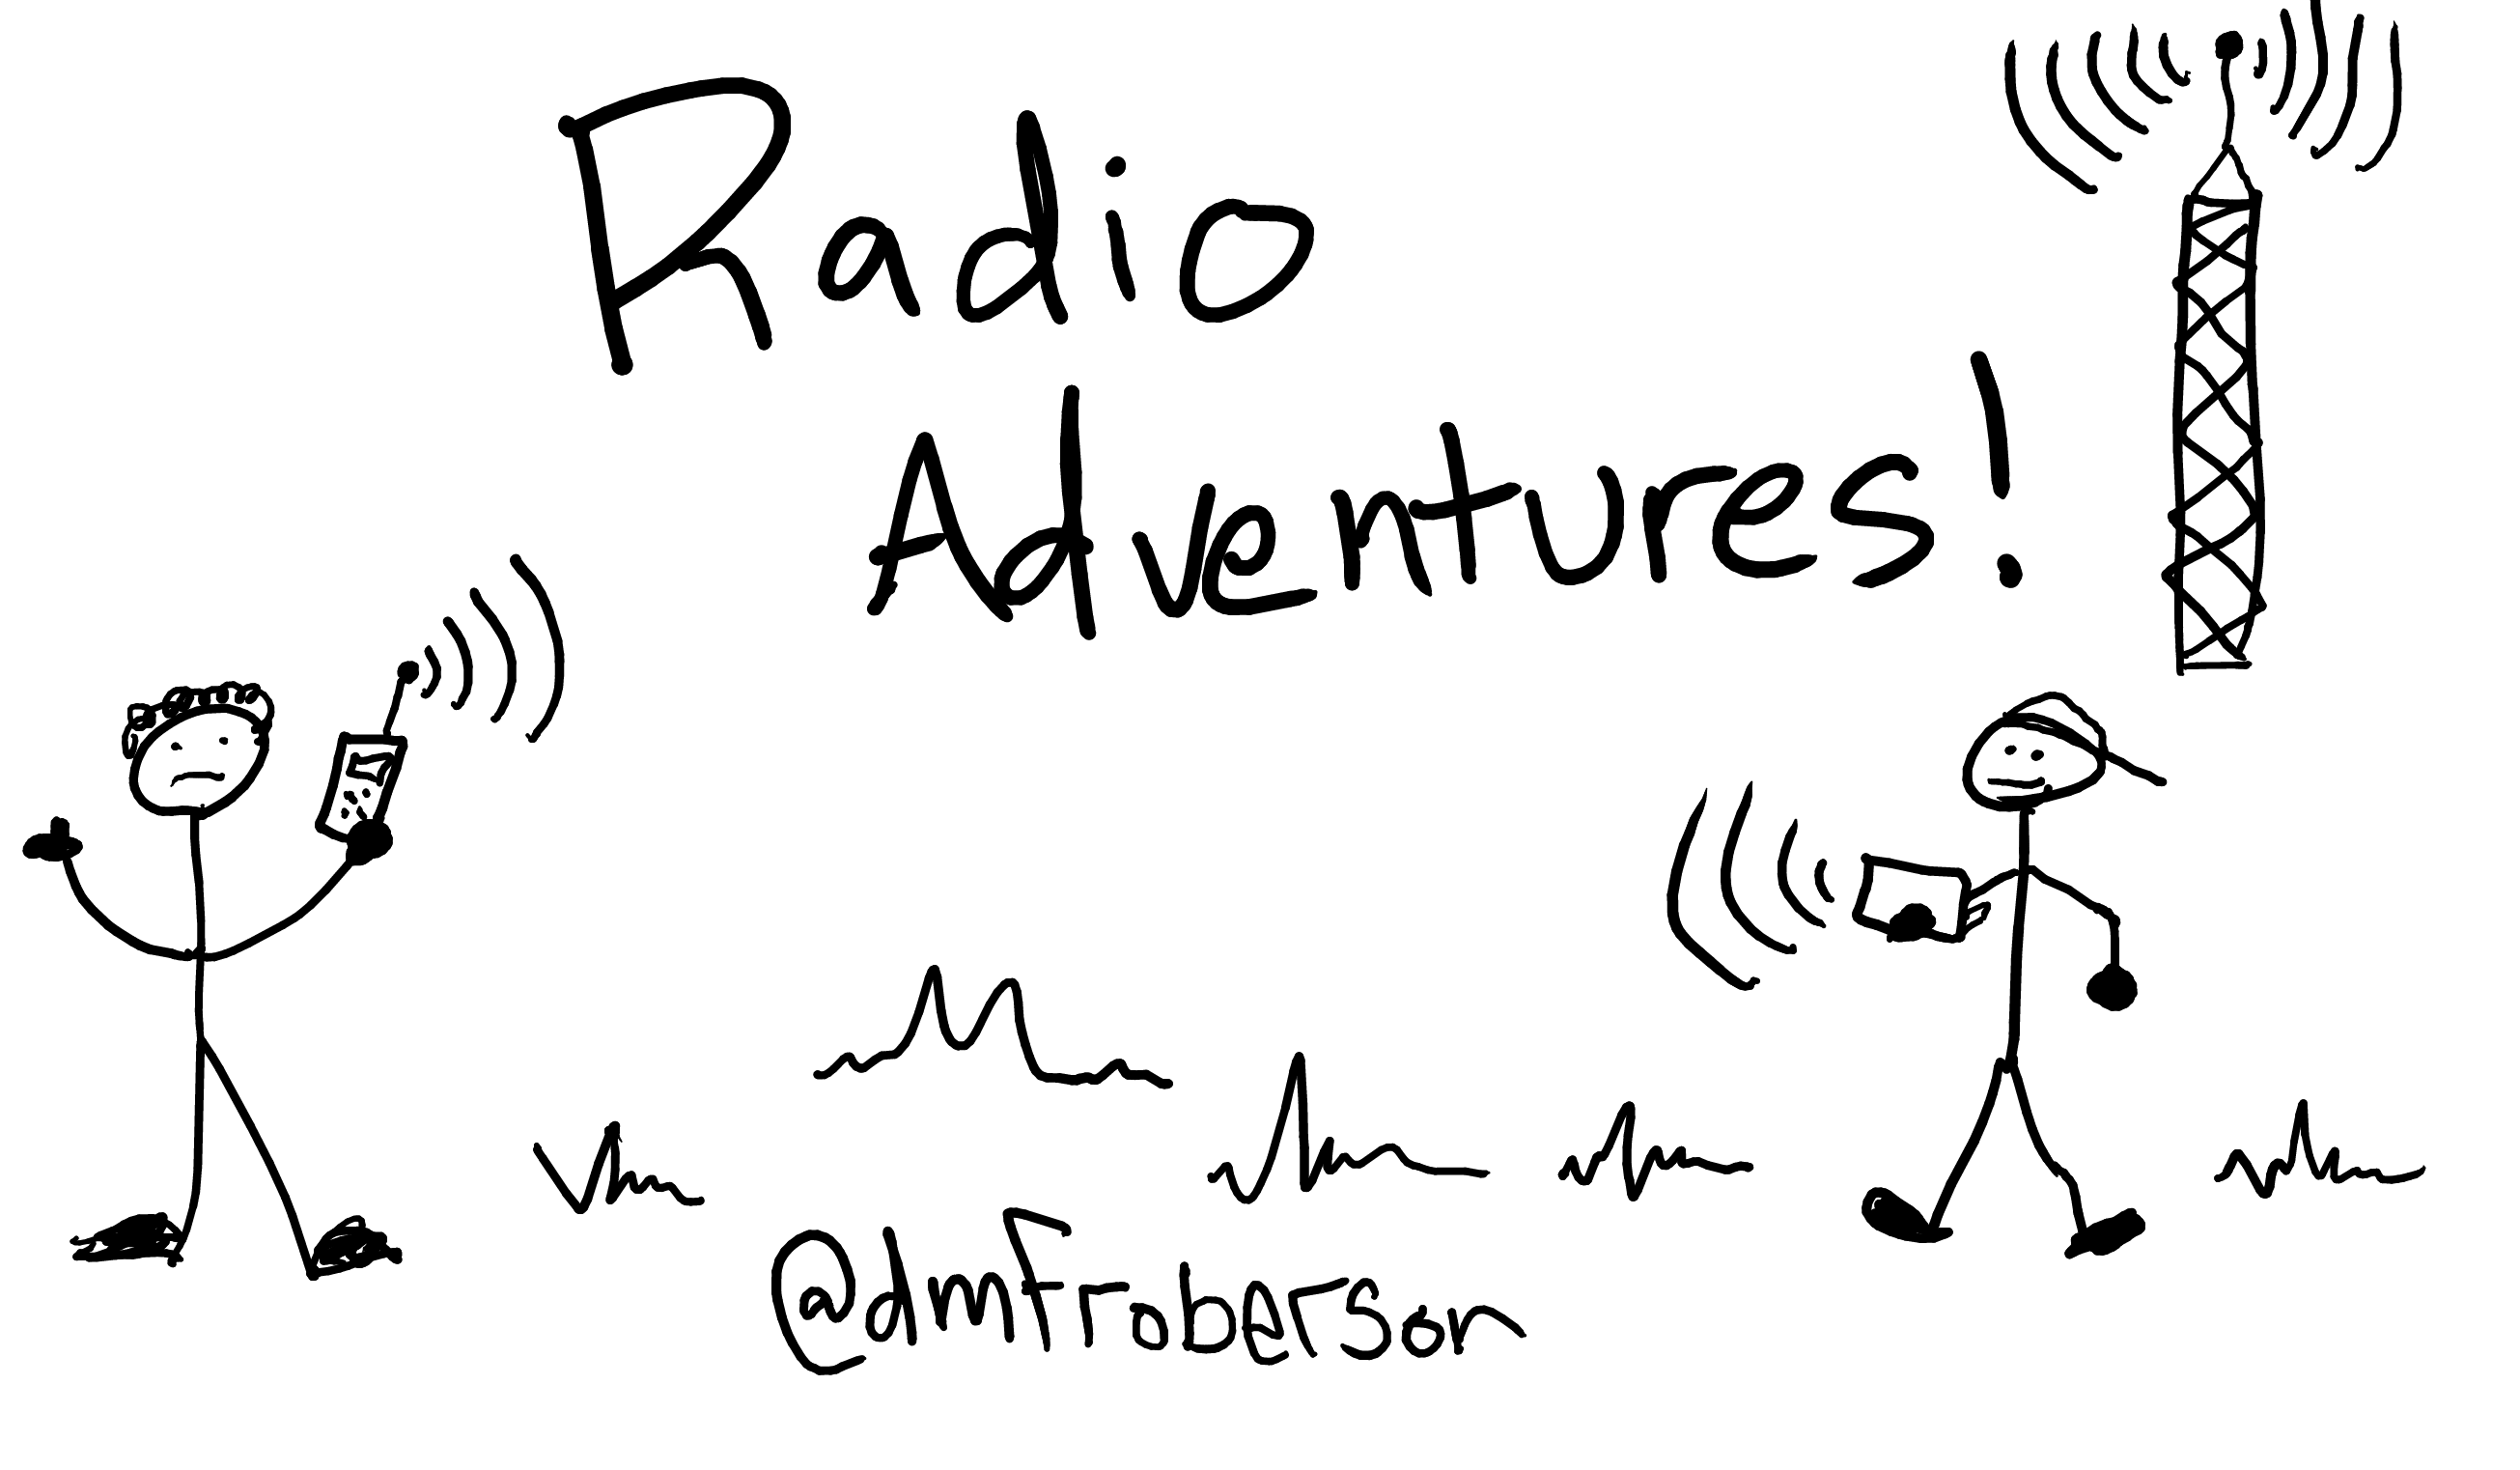 Radio
Adventures!
@dmfroberson